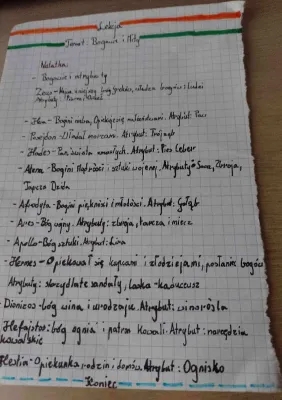 Lekcja
Temat: Bogowie i Mity
Notatka
- Bogowie i atrybuty
Zeus - bogów i ludzi
Atrybuty: Piorun i
- Hera - Bogini nieba, Opiekuje się małżeństwami. Atrybut: Paw
- Posejdon - Władał morzami. Atrybut: Trójząb
- Hades - Pan świata zmarłych. Atrybut: Pies Cerber
- Atena - Bogini Mądrości i sztuki wojennej, Atrybuty: Sowa, Zbroja,
Tarcza Dzida
- Afrodyta - Bogini piękności i miłości. Atrybut: Gołąb
- Ares - Bóg wojny. Atrybuty: zbroja, tarcza i miecz
- Apollo - Bóg sztuki. Atrybut: Lira
- Hermes - Opiekował się kupcami i złodziejami, posłaniec bogów
Atrybuty: skrzydlate sandały, Laska - Kaduceusz
- Dionizos - bóg wina i urodzaju. Atrybut: winorośla
- Hefajstos: bóg ognia i patron kowali. Atrybut: narzędzia
kowalskie
Hestia - Opiekunka rodzin i domu. Atrybut: Ognisko
Koniec